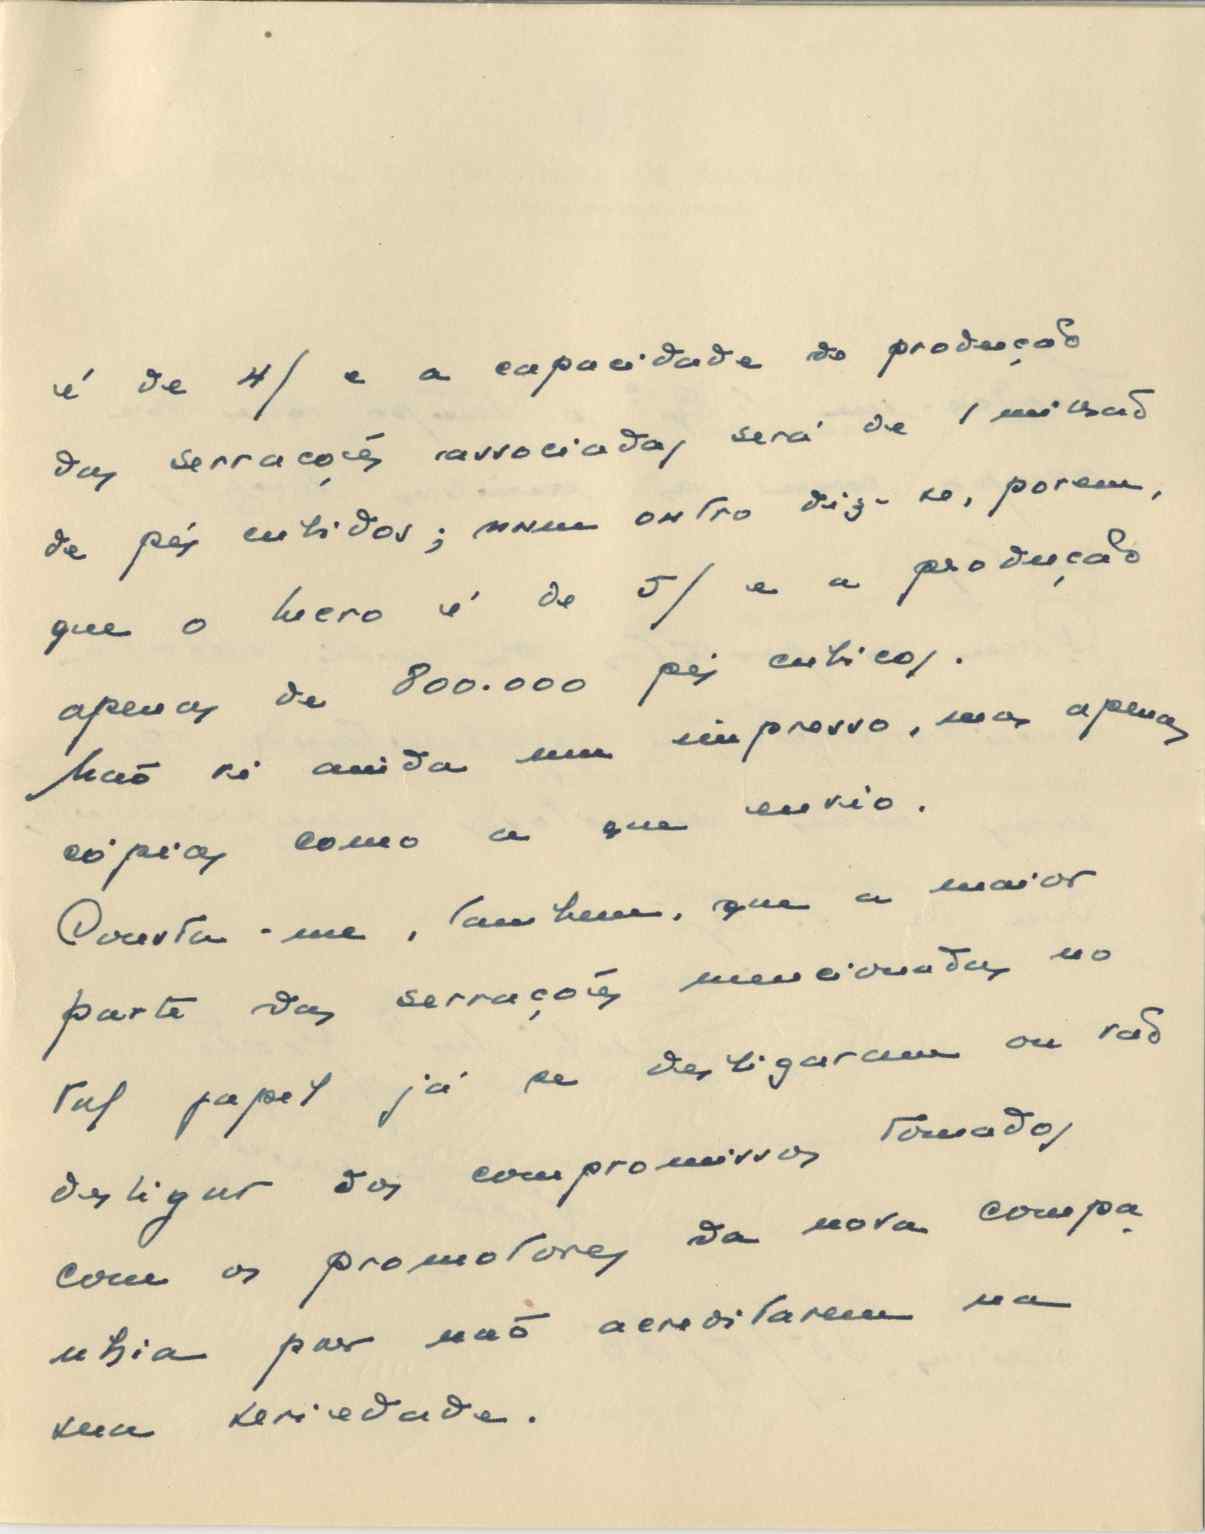 é de 4/ e a capacidade de produção
das serrações associadas será de 1 milhão
de pés cubidos; num outro diz-se, porem,
que o lucro é de 5/ e a produção
apenas de 800.000 pés cubicos.
Não vi ainda um impresso, mas apenas
cópias como a que envio.
Consta-me, tambem, que a maior
parte das serrações mencionadas no
tal papel já se desligaram ou vão
desligar dos compromissos tomados
com os promotores da nova compa-
nhia por não acreditarem na
sua seriedade.